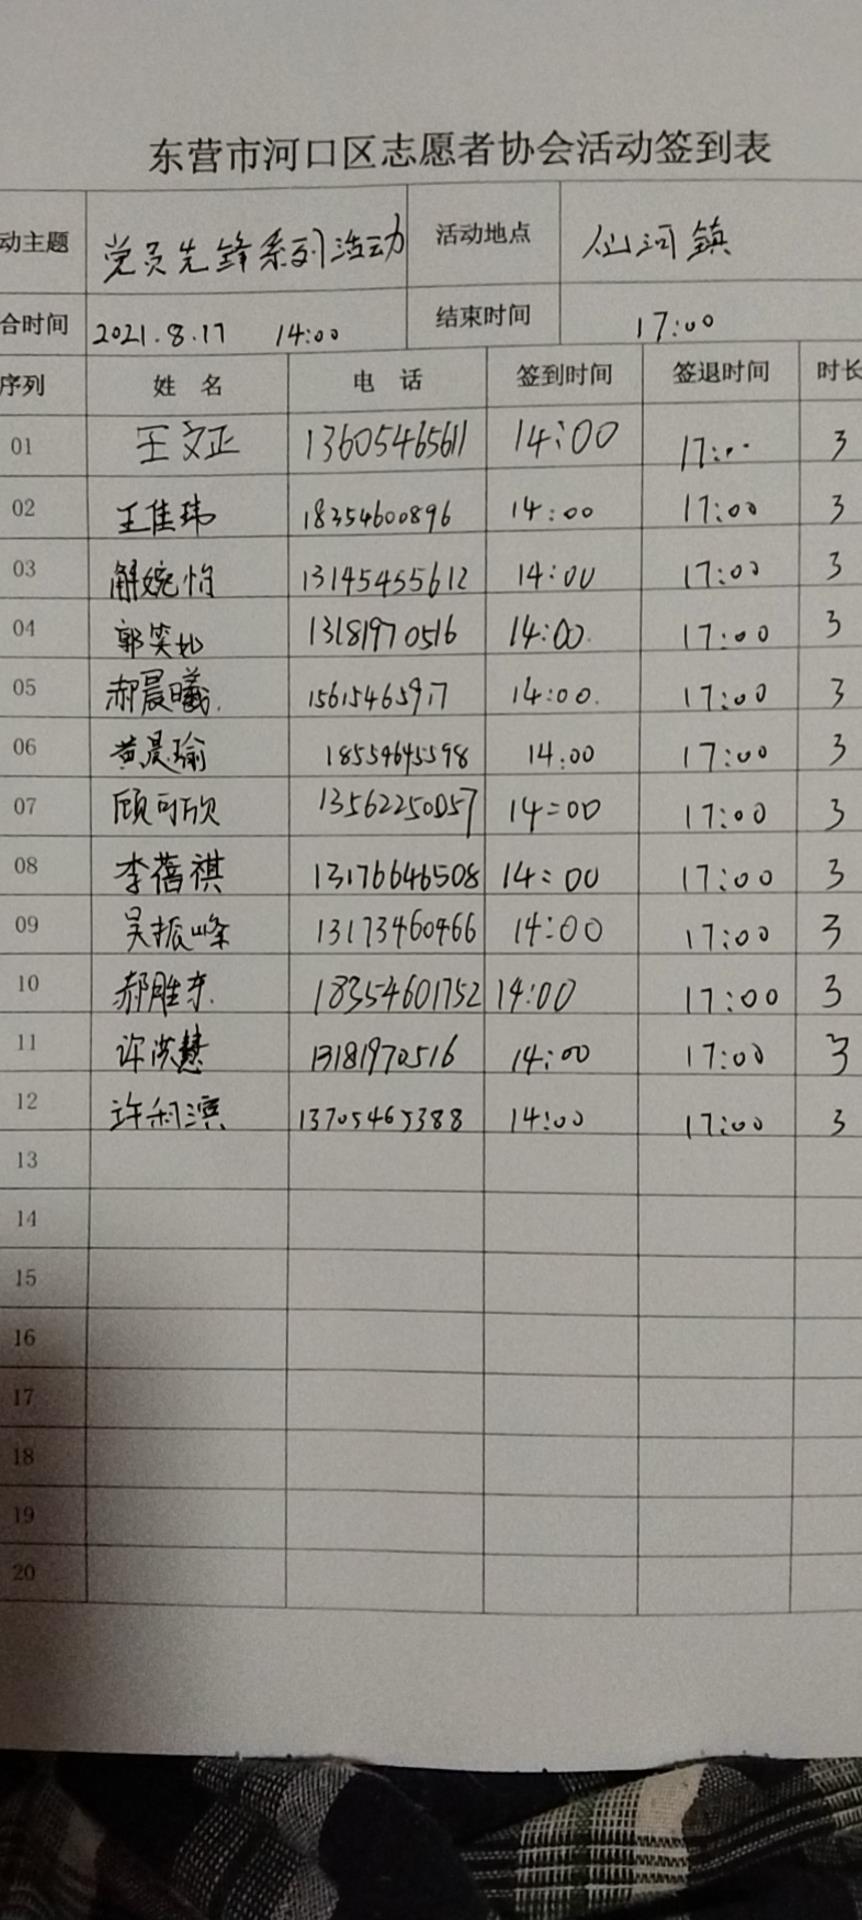 东营市河口区志愿者协会活动签到表
动主题 党员先锋系列活动 活动地点 仙河镇
合时间 2021.8.17 14:00 结束时间 17:00
序列 姓 名 电 话 签到时间 签退时间 时长
01 王文正 13605465611 14:00 17:00 3
02 王佳玮 18354600896 14:00 17:00 3
03 解婉怡 13145455612 14:00 17:00 3
04 郭笑妃 13181970516 14:00 17:00 3
05 郝晨曦 15615465917 14:00 17:00 3
06 黄晨瑜 18554645598 14:00 17:00 3
07 顾可欣 13562250057 14:00 17:00 3
08 李蓓祺 13176646508 14:00 17:00 3
09 吴振峰 13173460466 14:00 17:00 3
10 郝胜东 18354601752 14:00 17:00 3
11 许洪慧 13181970516 14:00 17:00 3
12 许利滨 13705465388 14:00 17:00 3
13
14
15
16
17
18
19
20